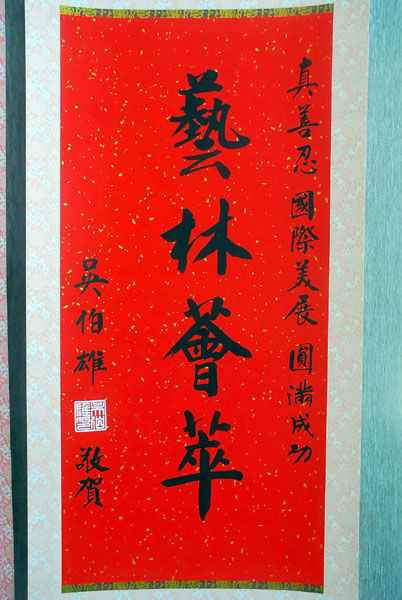 真善忍 國際美展 圓滿成功
藝林薈萃
吳伯雄
敬賀